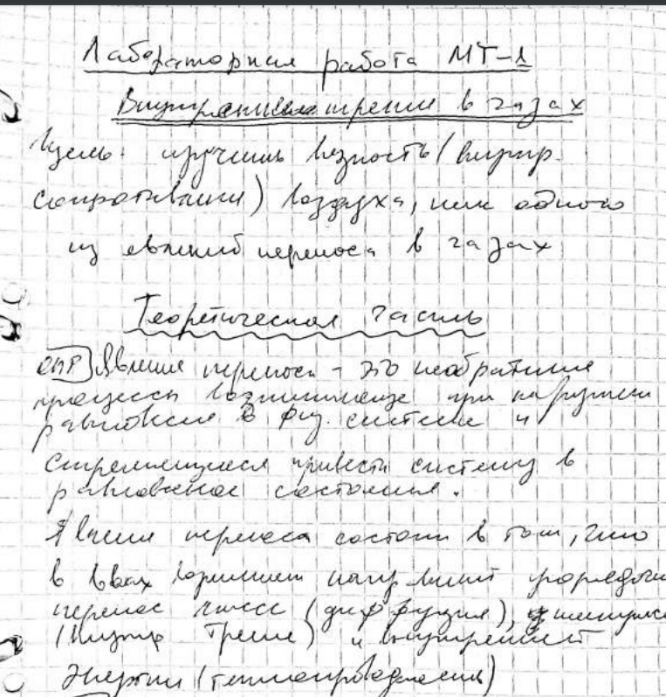 Лабораторная работа МТ-1
Внутреннее трение в газах
Цель: изучить вязкость (внутр.
сопротивление) воздуха, как одного
из явлений переноса в газах
Теоретическая часть
ОПР Явления переноса – это необратимые
процессы возникающие при нарушении
равновесия в физ. системе и
стремящиеся привести систему в
равновесное состояние.
Явление переноса состоит в том, что
в возникает направл
перенос массы (диффузия), импульса
(внутр трение) и внутренней
энергии (теплопроводность)